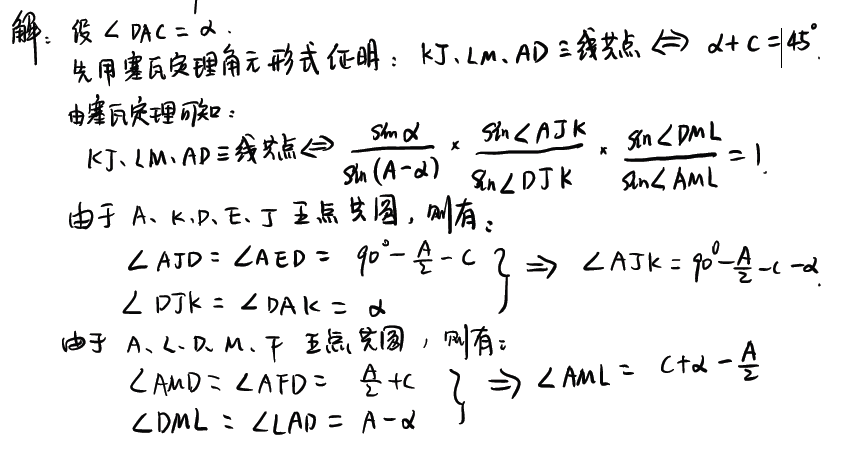 解：设∠DAC = α.
先用塞瓦定理角元形式证明：KJ、LM、AD三线共点 ⇔ α+C=45°.
由塞瓦定理可知：
KJ、LM、AD三线共点 ⇔ sinα/sin(A-α) × sin∠AJK/sin∠DJK × sin∠DML/sin∠AML = 1.
由于 A、K、D、E、J 五点共圆，则有：
∠AJD = ∠AED = 90° - A/2 - C
∠DJK = ∠DAK = α } ⇒ ∠AJK = 90° - A/2 - C - α.
由于 A、L、D、M、F 五点共圆，则有：
∠AMD = ∠AFD = A/2 + C
∠DML = ∠LAD = A - α } ⇒ ∠AML = C + α - A/2